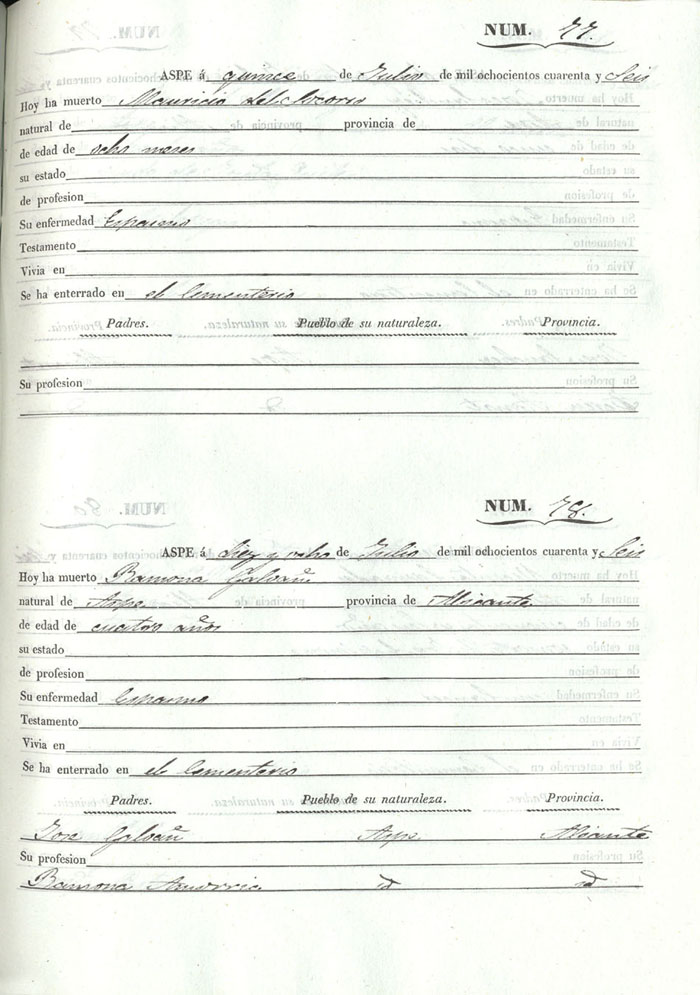 NUM. 77.
ASPE á quince de Julio de mil ochocientos cuarenta y Seis
Hoy ha muerto Mauricio del
natural de provincia de
de edad de ocho meses
su estado
de profesion
Su enfermedad Espasmo
Testamento
Vivia en
Se ha enterrado en el Cementerio
Padres. Pueblo de su naturaleza. Provincia.
Su profesion
NUM. 78.
ASPE á Diez y ocho de Julio de mil ochocientos cuarenta y Seis
Hoy ha muerto Ramona Galvañ
natural de Aspe provincia de Alicante
de edad de cuatro años
su estado
de profesion
Su enfermedad Espasmo
Testamento
Vivia en
Se ha enterrado en el Cementerio
Padres. Pueblo de su naturaleza. Provincia.
Jose Galvañ Aspe Alicante
Su profesion
Ramona id id